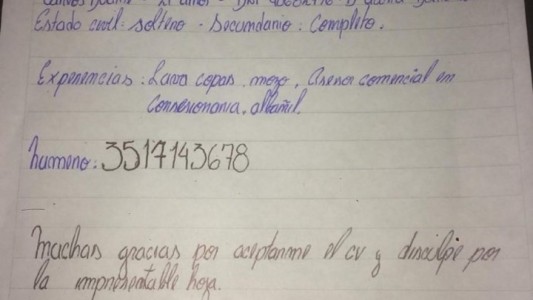 Estado civil: soltero - Secundario: Completo.
Experiencias: Lava copas, mozo, Asesor comercial en
Consesionaria, albañil.
numero: 3517143678
Muchas gracias por aceptarme el cv y disculpe por
la impresentable hoja.